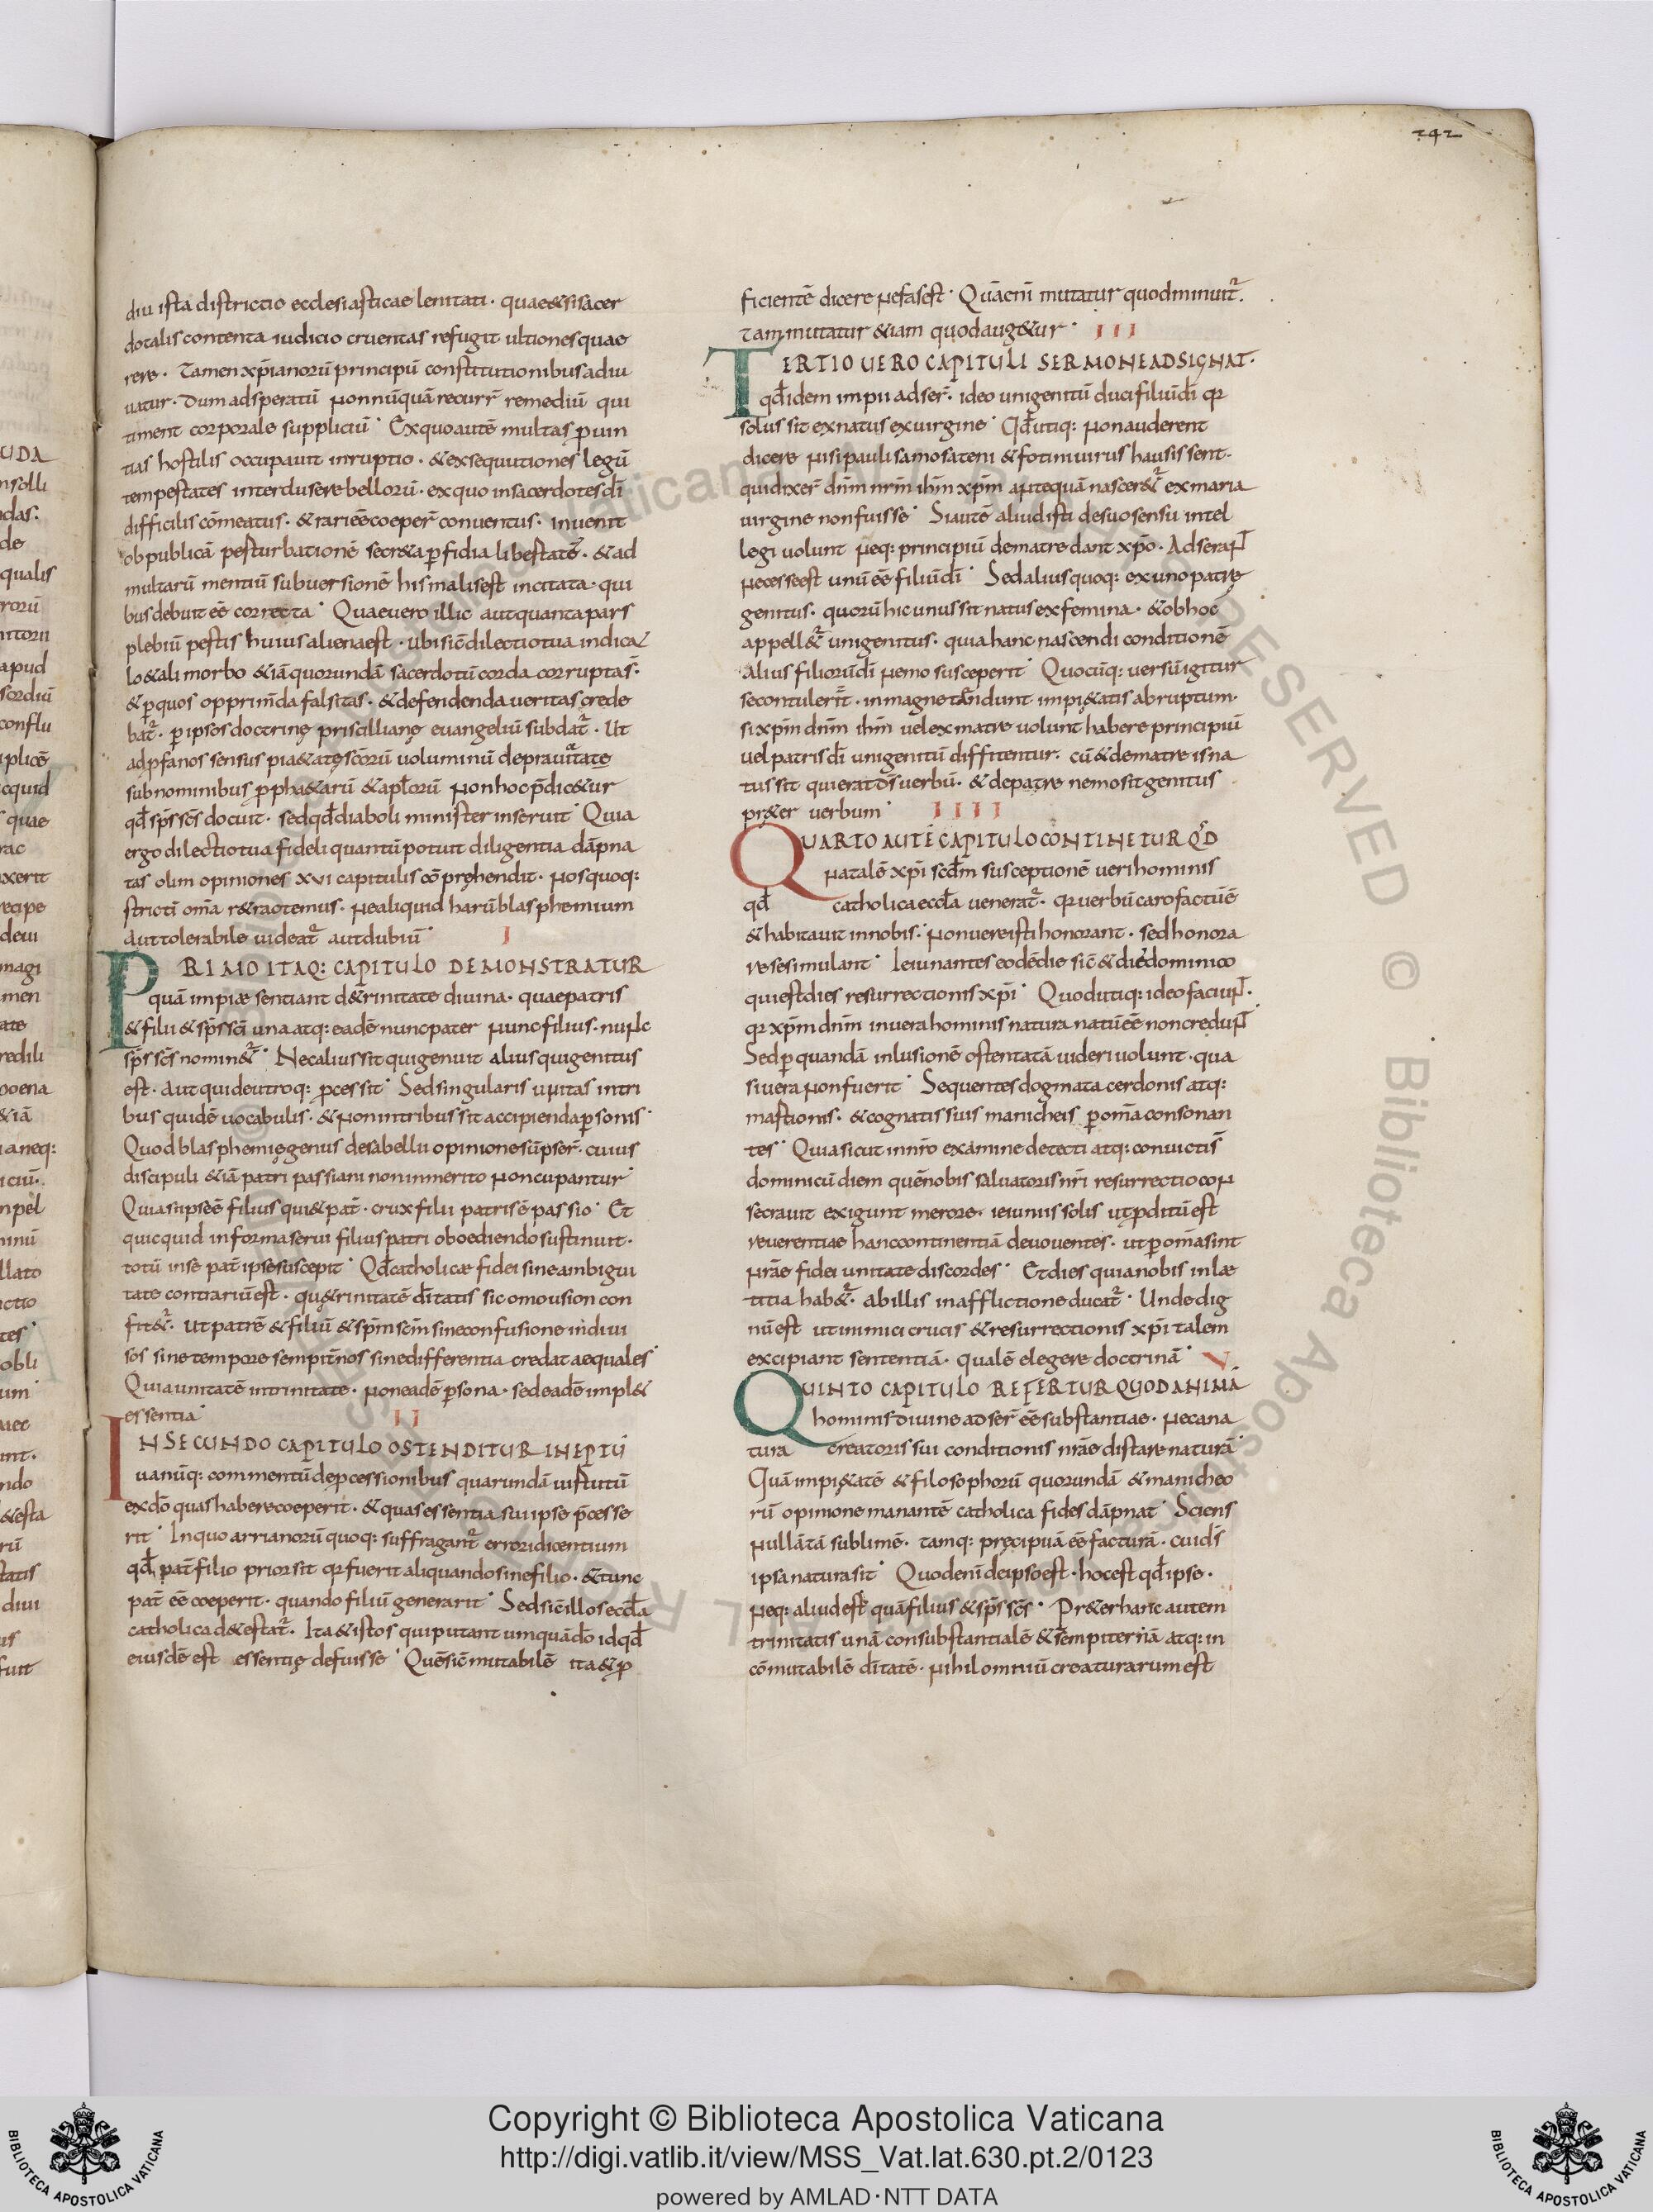 242
diu ista districtio ecclesiasticae lenitati· quae&sisacer
dotalis contenta iudicio cruentas refugit ultiones quae
rere· Tamen xp̄ianorū principū constitutionibus adiu
uatur· Dum ad speratū nonnūquā recurr̄ remediū qui
timent corporale suppliciū· Ex quo autē multas ꝓuin
tias hostilis occupauit inruptio· & exsequutiones legū
tempestates interclusere bellorū· ex quo in sacerdotes dī
difficilis cōmeatus· & rari eē coeper̄ conuentus· inuenit
ob publicā pesturbationē secr&a ꝑfidia libestatē· & ad
multarū mentiū subuersionē his malis est incitata· qui
bus debuit eē correcta· Quae uero illic aut quanta pars
plebiū pestis huius aliena est· ubi sic̄ dilectio tua indica&
lo&ali morbo &iā quorundā sacerdotū corda corrupta s̄·
& ꝑ quos opprim̄da falsitas· & defendenda ueritas crede
bat᷑· ꝑ ipsos doctrinę priscillianę euangeliū subdat᷑· Ut
ad ꝓfanos sensus pi&atę scōrū uoluminū deprauitate
sub nominibus ꝓpha&arū & apl̄orū non hoc p̄dic&ur
qd̄ sp̄s sc̄s docuit· sed qd̄ diaboli minister inseruit· Quia
ergo dilectio tua fideli quantū potuit diligentia dāpna
tas olim opiniones xvi capitulis cōpręhendit· nos quoq:
strictī om̄a r&ractemus· ne aliquid harū blasphemium
aut tolerabile uideat᷑ aut dubiū· I
PRIMO ITAQ: CAPITULO DEMONSTRATUR
quā impiæ sentiant d&rinitate diuina· quae patris
& filii & sp̄s sc̄i una atq: eadē nunc pater nunc filius· nunc
sp̄s sc̄s nomin&᷑· Nec alius sit qui genuit alius qui genitus
est· aut qui de utroq: ꝓcessit· Sed singularis unitas in tri
bus quidē uocabulis· & non in tribus sit accipienda ꝑsonis·
Quod blasphemię genus de sabellii opinione sūpser̄· cuius
discipuli &iā patripassiani non inmerito noncupantur·
Quia si ipse ē filius qui & pat̄· crux filii patris ē passio· Et
quicquid in forma serui filius patri oboediendo sustinuit·
totū in se pat̄ ipse suscepit· Qd̄ catholicæ fidei sine ambigui
tate contrariū est· quę &rinitatē dītatis sic omousion con
fit&᷑· ut patrē & filiū & sp̄m sc̄m sine confusione indiui
sos sine tempore sempit̄nos sine differentia credat aequales·
Quia unitatē in trinitate· non eadē ꝑsona· sed eadē impl&
essentia· II
IN SECUNDO CAPITULO OSTENDITUR INEPTŪ
uanūq: commentū de ꝓcessionibus quarundā uistutū
ex dō quas habere coeperit· & quas essentia sui ipse p̄cesse
rit· In quo arrianorū quoq: suffragant᷑ errori dicentium
qd̄ pat̄ filio prior sit qr fuerit aliquando sine filio· & tunc
pat̄ eē coeperit· quando filiū generarit· Sed sic̄ illos eccl̄a
catholica d&estat᷑· Ita & istos qui putant umquā dō id qd̄
eiusdē est essentię defuisse· Quē sic̄ mutabilē ita & ꝓ
ficientē dicere nefas est· Quā enī mutatur quod minuit᷑·
tam mutatur &iam quod aug&ur· III
TERTIO UERO CAPITULI SERMONE ADSIGNAT·
qd̄ idem impii adser̄· ideo unigenitū duci filiū dī qr
solus sit ex natus ex uirgine· Qd̄ utiq: non auderent
dicere nisi pauli samosateni & fotini uirus hausissent·
qui dixer̄ dn̄m nr̄m ihm̄ xp̄m antequā nascer&᷑ ex maria
uirgine non fuisse· Si autē aliud isti de suo sensu intel
legi uolunt neq: principiū de matre dant xp̄o· Adserant
necesse est unū eē filiū dī· Sed alius quoq: ex uno patre
genitus· quorū hic unus sit natus ex femina· & ob hoc
appell&᷑ unigenitus· quia hanc nascendi conditionē
alius filiorū dī nemo susceperit· Quocūq: uersū igitur
se contulerīt· in magne tendunt impi&atis abruptum·
si xp̄m dn̄m ihm̄ uel ex matre uolunt habere principiū
uel patris dī unigenitū diffitentur· cū & de matre is na
tus sit qui erat d̄s uerbū· & de patre nemo sit genitus
pr&er uerbum· IIII
QUARTO AUTĒ CAPITULO CONTINETUR QD̄
natalē xp̄i scd̄m susceptionē ueri hominis
qd̄ catholica eccl̄a uenerat᷑· qr uerbū caro factū ē
& habitauit in nobis· non uere isti honorant· sed honora
re se simulant· Ieiunantes eodē die sic̄ & die dominico
qui est dies resurrectionis xp̄i· Quod utiq: ideo faciunt·
qr xp̄m dn̄m in uera hominis natura natū eē non credunt·
Sed ꝑ quandā inlusionē ostentatā uideri uolunt· qua
si uera non fuerit· Sequentes dogmata cerdonis atq:
mastionis· & cognatis suis manicheis ꝑ om̄a consonan
tes· Qui a sicut in nr̄o examine detecti atq: conuicti s̄
dominicū diem quē nobis saluatoris nr̄i resurrectio con
secrauit exigunt merore· ieiuniis solis ut ꝓditū est
reuerentiae hanc continentiā deuouentes· ut ꝑ om̄a sint
nr̄ae fidei unitate discordes· Et dies qui a nobis in læ
titia hab&᷑· ab illis in afflictione ducat᷑· Unde dig
nū est ut inimici crucis & resurrectionis xp̄i talem
excipiant sententiā· qualē elegere doctrinā· V
QUINTO CAPITULO REFERTUR QUOD ANIMĀ
hominis diuine adser̄ eē substantiae· nec a na
tura creatoris sui conditionis nr̄ae distare naturā·
Quā impi&atē & filosophorū quorundā & manicheo
rū opinione manantē catholica fides dāpnat· Sciens
nullā tā sublimē· tamq: pręcipuā eē facturā· cui d̄s
ipsa natura sit· Quod enī de ipso est· hoc est qd̄ ipse·
neq: aliud est quā filius & sp̄s sc̄s· Pr&er hanc autem
trinitatis unā consubstantialē & sempiternā atq: in
cōmutabilē dītatē· nihil omniū creaturarum est
Copyright © Biblioteca Apostolica Vaticana
http://digi.vatlib.it/view/MSS_Vat.lat.630.pt.2/0123
powered by AMLAD·NTT DATA
BIBLIOTECA APOSTOLICA VATICANA
BIBLIOTECA APOSTOLICA VATICANA